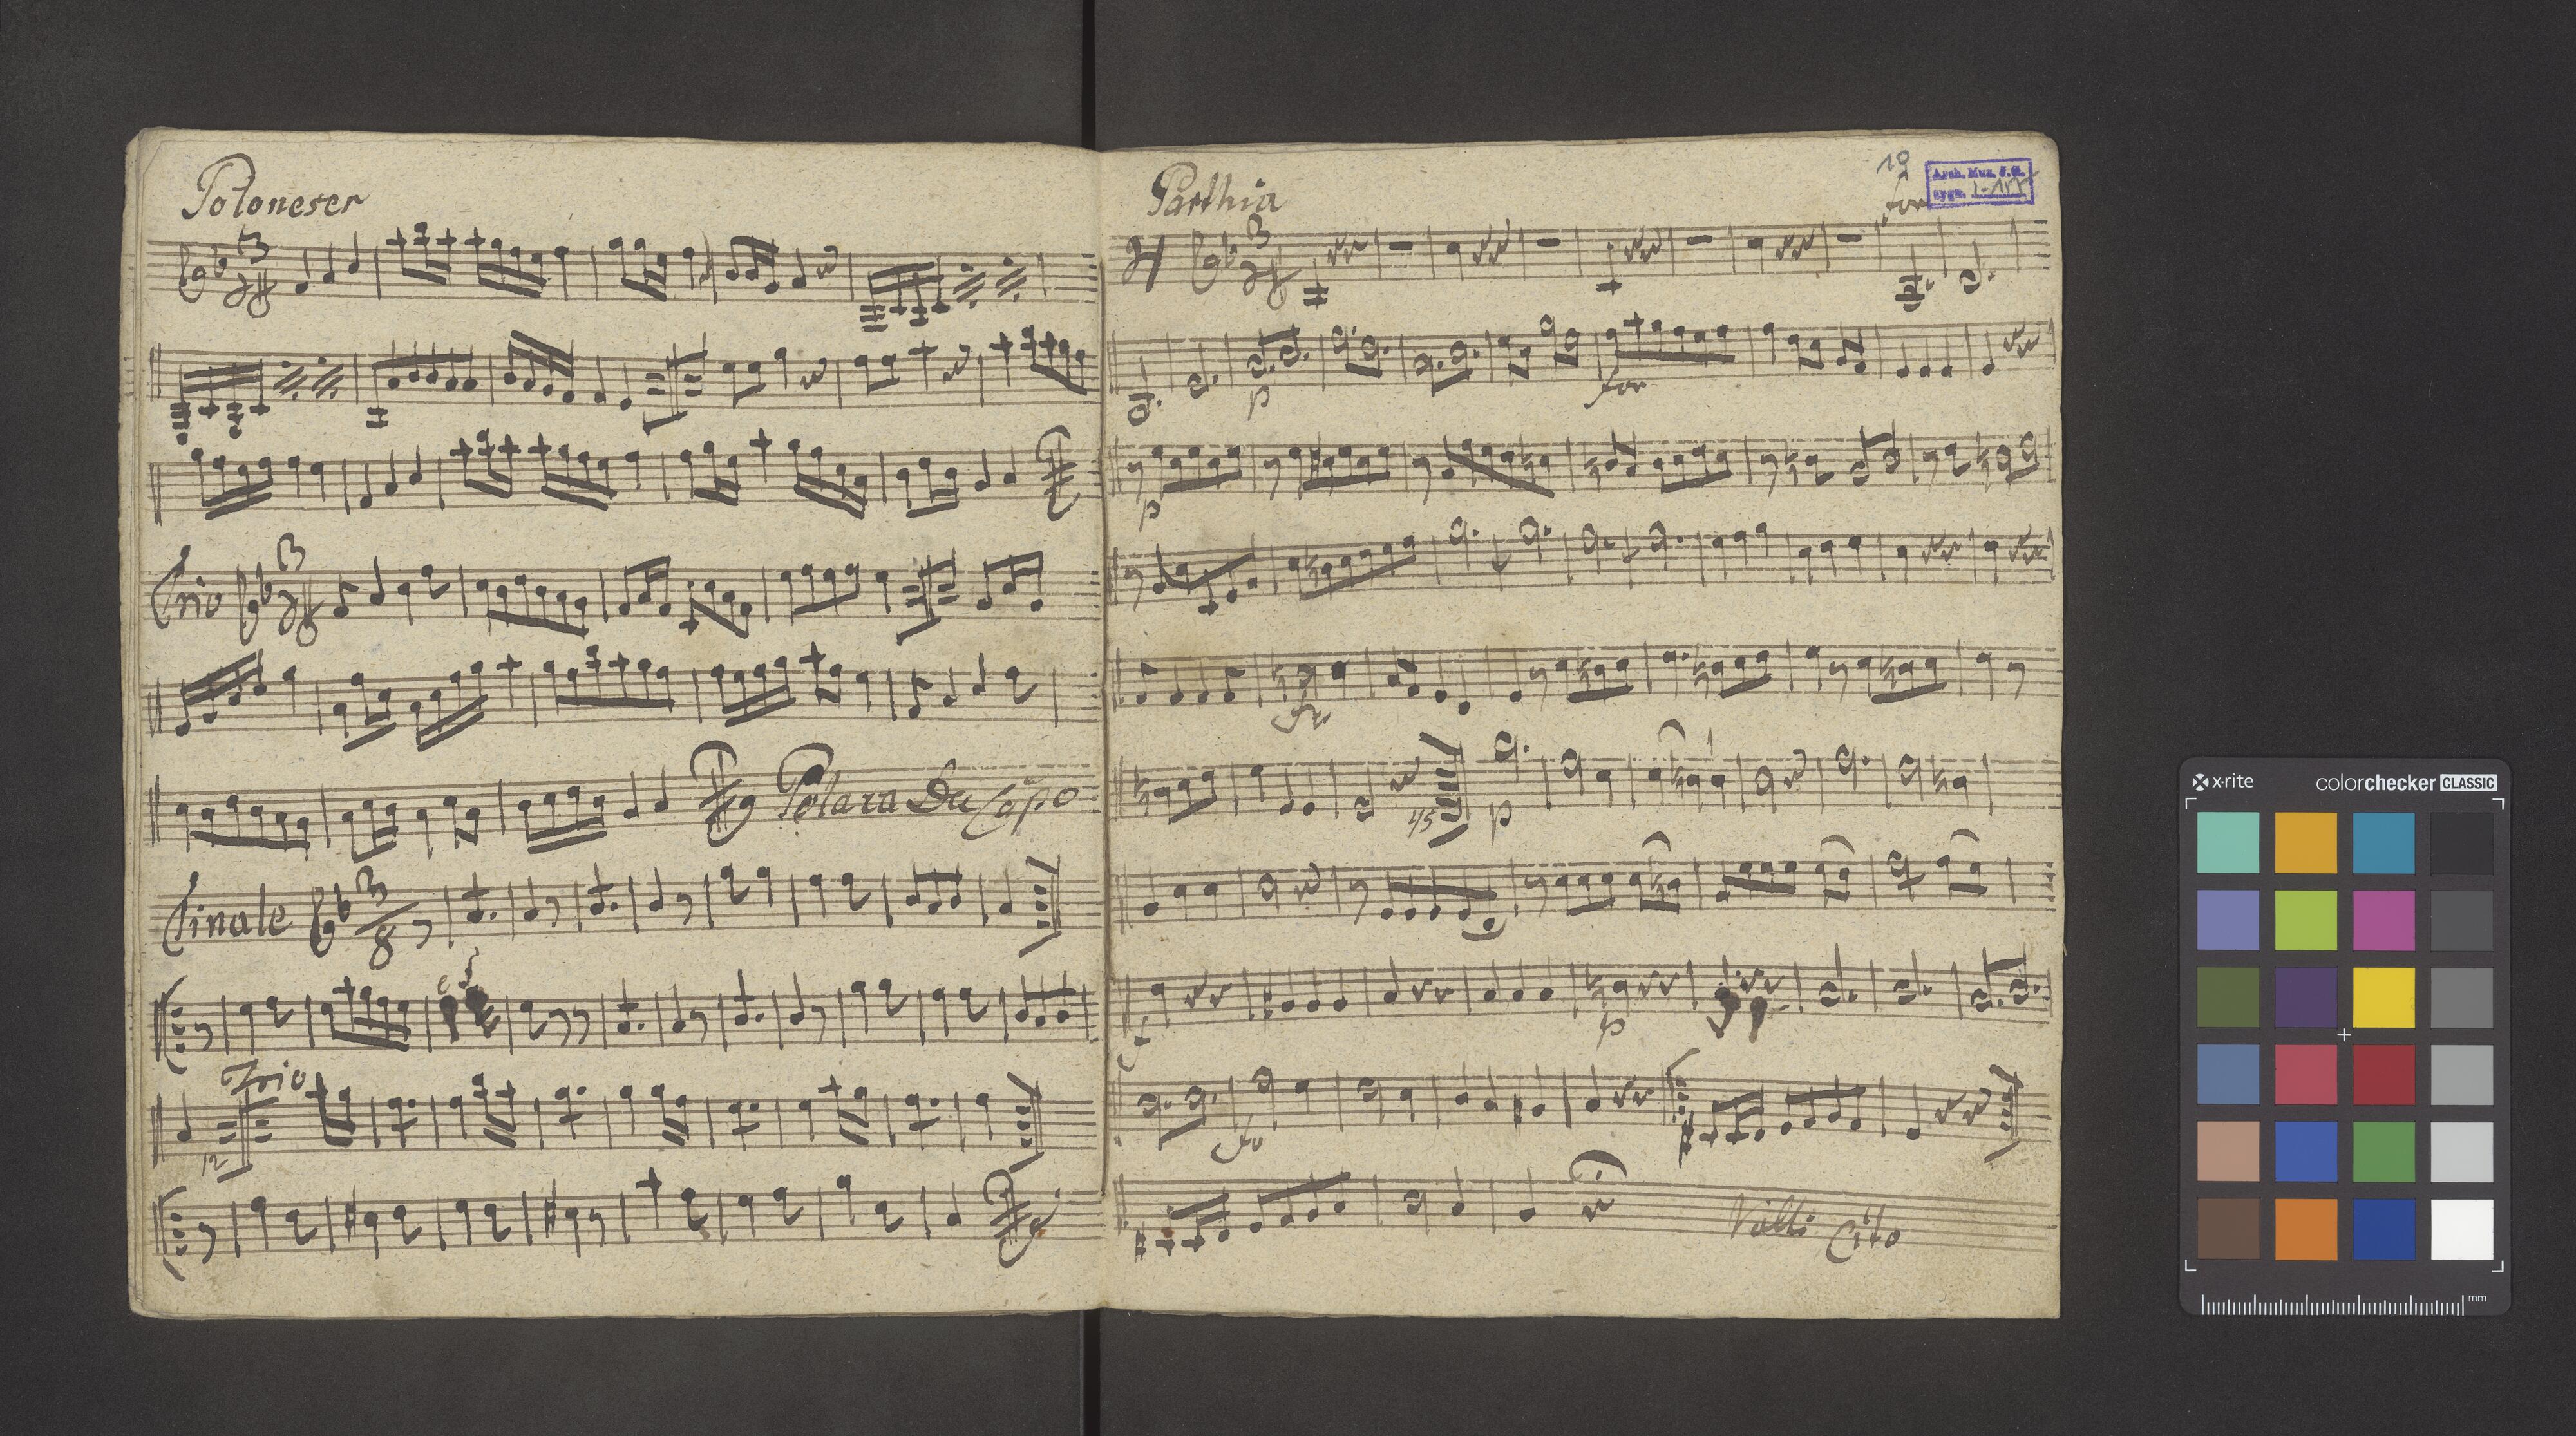 Poloneser
3
Trio
3
Polaza Da Capo
Finale
3
8
Trio
12
Parthia
19
for
Arch. Muz. J. G.
sygn.
3
p
for
p
45
p
f
p
fo
Volti Cito
x·rite
colorchecker CLASSIC
mm